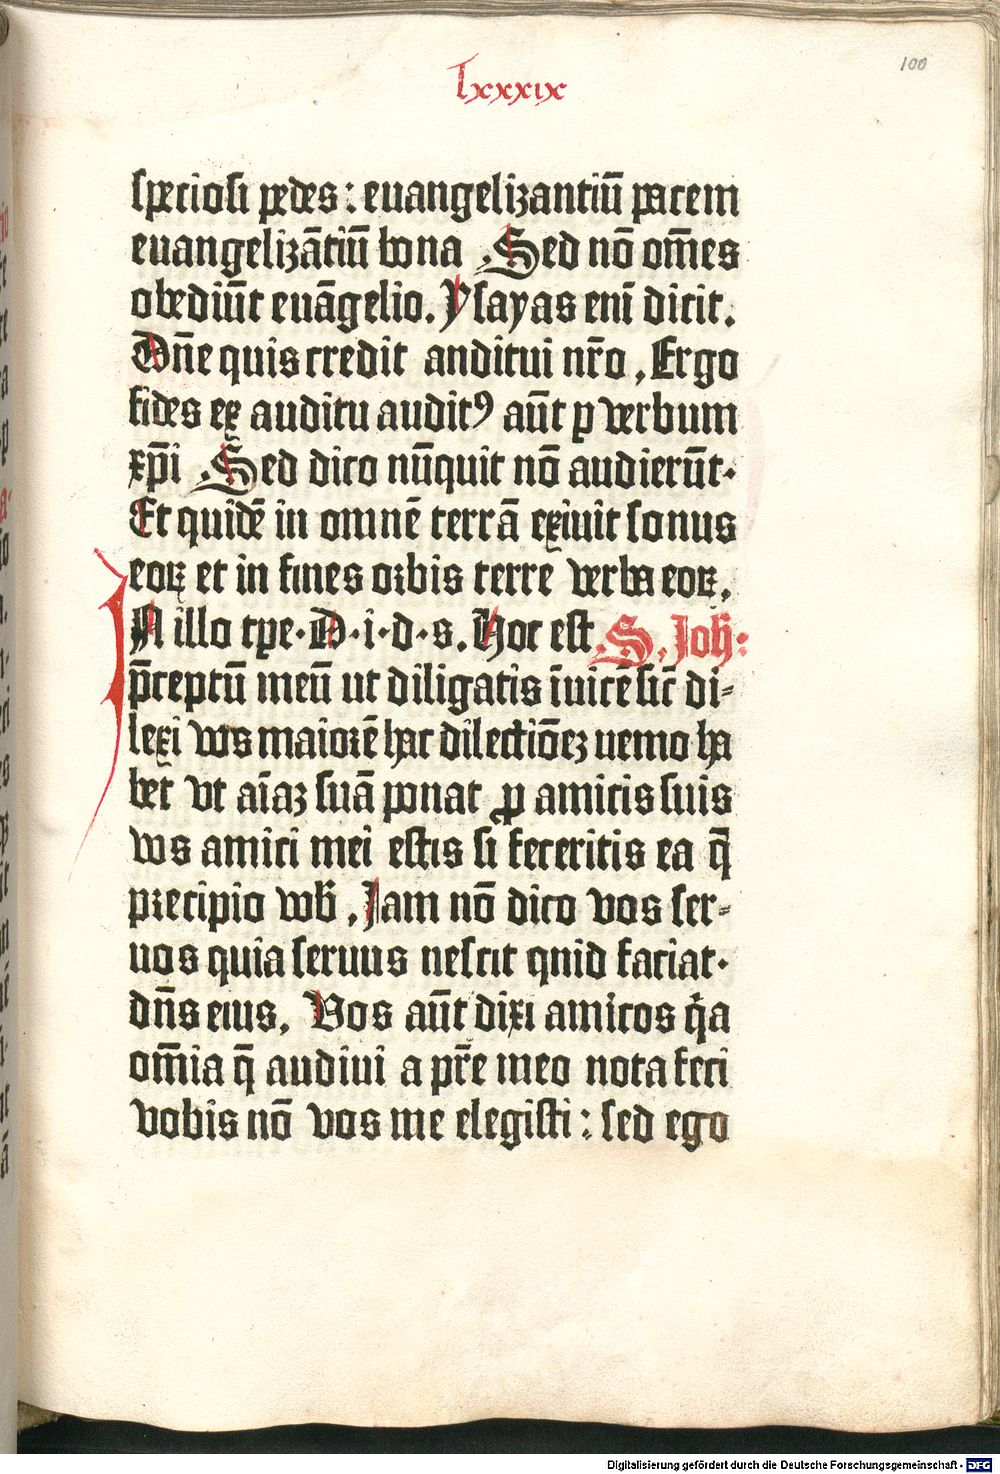 lxxxix
100
ſpecioſi pedes : euangelizantiū pacem
euangelizātiū bona . Sed nō om̄es
obediūt euāgelio. Yſayas enī dicit.
Dn̄e quis credit anditui nr̄o , Ergo
fides ex auditu auditꝰ aūt ꝑ verbum
xp̄i . Sed dico nūquit nō audierūt.
Et quidē in omnē terrā exiuit ſonus
eoꝝ et in fines orbis terre verba eoꝝ,
IN illo tꝑe . D . i . d . s . Hoc eſt S. Joh̄:
p̄ceptū meū ut diligatis īuicē ſic̄ di⸗
lexi vos maiorē hac dilectiōeꝫ uemo ha
bet vt aīaꝫ ſuā ponat ꝓ amicis ſuis
vos amici mei eſtis ſi feceritis ea q̄
precipio vob̄ , Jam nō dico vos ſer⸗
uos quia ſeruus neſcit qnid faciat.
dn̄s eius, Vos aūt dixi amicos q̇a
om̄ia q̄ audiui a pr̄e meo nota feci
vobis nō vos me elegiſti : ſed ego
Digitalisierung gefördert durch die Deutsche Forschungsgemeinschaft - DFG